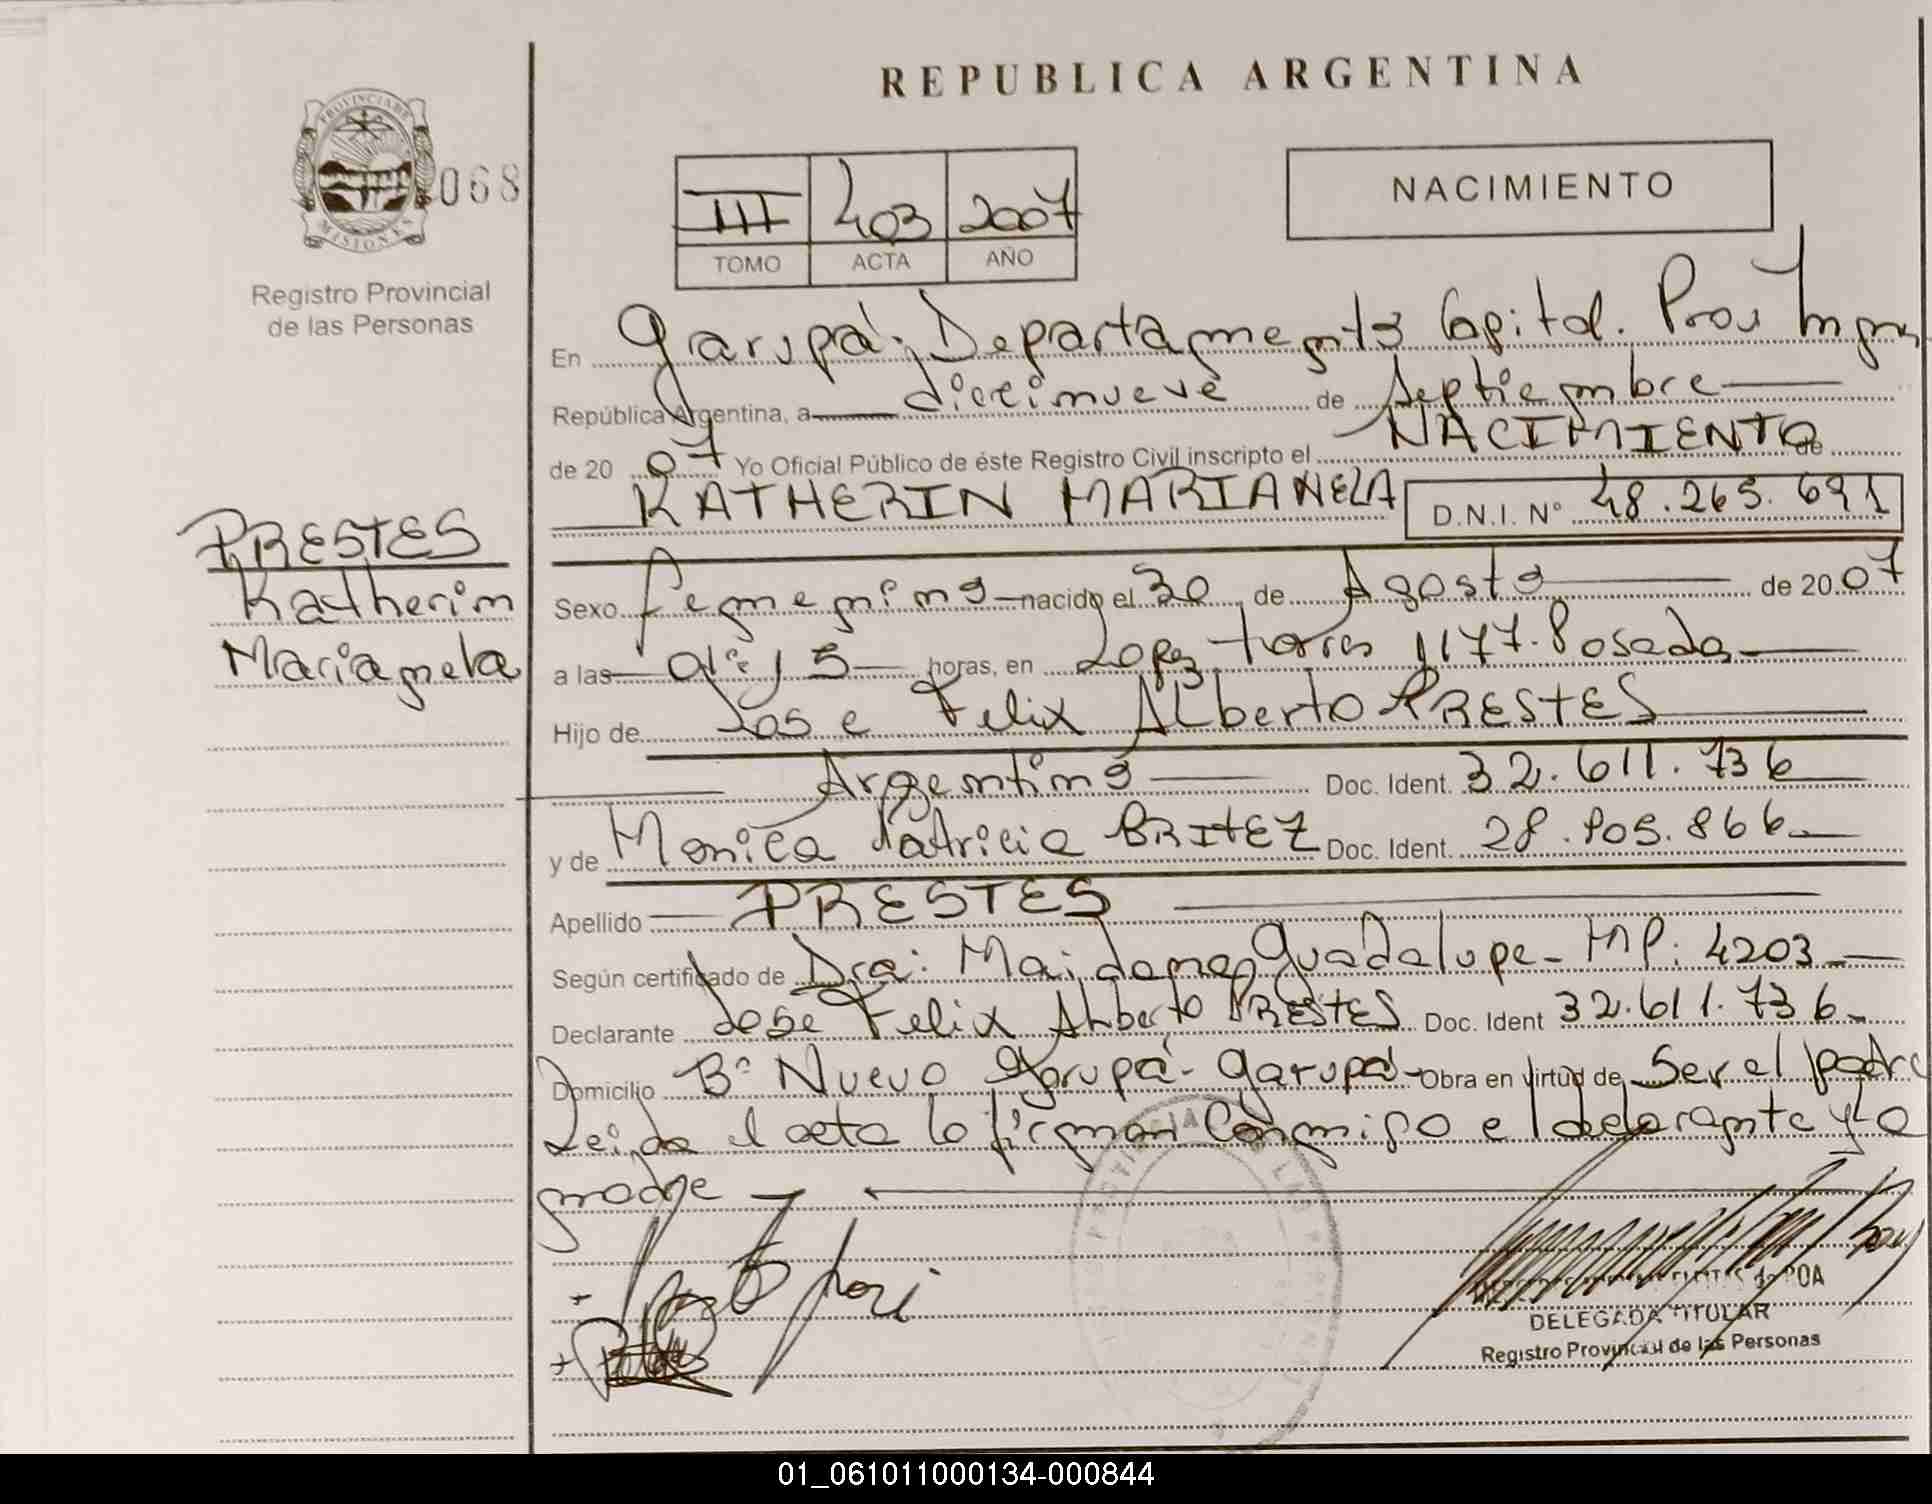 REPUBLICA ARGENTINA
PROVINCIA DE
MISIONES
068
Registro Provincial
de las Personas
III 403 2007
TOMO ACTA AÑO
NACIMIENTO
En Garupá; Departamento Capital. Prov
República Argentina, a diecinueve de Septiembre
de 2007 Yo Oficial Público de éste Registro Civil inscripto el NACIMIENTO de
KATHERIN MARIANELA D.N.I. Nº 48.265.691
PRESTES
Katherin
Marianela
Sexo femenino nacido el 30 de Agosto de 2007
a las 01 y 5 horas, en Lopez Torres 1177. Posadas
Hijo de Jose Felix Alberto PRESTES
Argentino Doc. Ident. 32.611.736
y de Monica Patricia BRITEZ Doc. Ident. 28.905.866
Apellido PRESTES
Según certificado de Dra: Maidana Guadalupe - MP: 4203
Declarante Jose Felix Alberto PRESTES Doc. Ident 32.611.736
Domicilio Bº Nuevo Garupá - Garupá - Obra en virtud de Ser el padre
Leida el acta lo firman conmigo el declarante y la
madre
DELEGADA TITULAR
Registro Provincial de las Personas
01_061011000134-000844